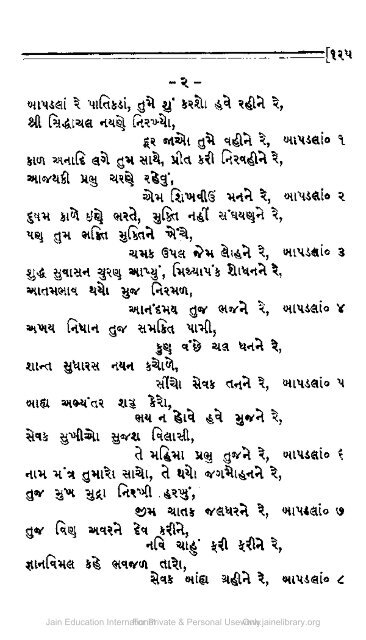 [૧૨૫
- ૨ -
બાપડલાં રે પાતિકડાં, તુમે શું કરશો હવે રહીને રે,
શ્રી સિદ્ધાચલ નયણે નિરખ્યો,
દૂર જાઓ તુમે વહીને રે, બાપડલાં૦ ૧
કાળ અનાદિ લગે તુમ સાથે, પ્રીત કરી નિરવહીને રે,
આજથકી પ્રભુ ચરણે રહેવું,
એમ શિખવીઉં મનને રે, બાપડલાં૦ ૨
દુષમ કાળે ઇણે ભરતે, મુક્તિ નહીં સંઘયણને રે,
પણ તુમ ભક્તિ મુક્તિને ખેંચે,
ચમક ઉપલ જેમ લોહને રે, બાપડલાં૦ ૩
શુદ્ધ સુવાસન ચુરણ આપ્યું, મિથ્યાપંક શોધનને રે,
આતમભાવ થયો મુજ નિરમળ,
આનંદમય તુજ ભજને રે, બાપડલાં૦ ૪
અખય નિધાન તુજ સમકિત પામી,
કુણ વંછે ચલ ધનને રે,
શાન્ત સુધારસ નયન કચોળે,
સીંચો સેવક તનને રે, બાપડલાં૦ ૫
બાહ્ય અભ્યંતર શત્રુ કેરો,
ભય ન હોવે હવે મુજને રે,
સેવક સુખીઓ સુજશ વિલાસી,
તે મહિમા પ્રભુ તુજને રે, બાપડલાં૦ ૬
નામ મંત્ર તુમારો સાચો, તે થયો જગમોહનને રે,
તુજ મુખ મુદ્રા નિરખી હરખું,
જીમ ચાતક જલધરને રે, બાપડલાં૦ ૭
તુજ વિણ અવરને દેવ કરીને,
નવિ ચાહું ફરી ફરીને રે,
જ્ઞાનવિમલ કહે ભવજળ તારો,
સેવક બાંહ્ય ગ્રહીને રે, બાપડલાં૦ ૮
Jain Education International For Private & Personal Use Only www.jainelibrary.org